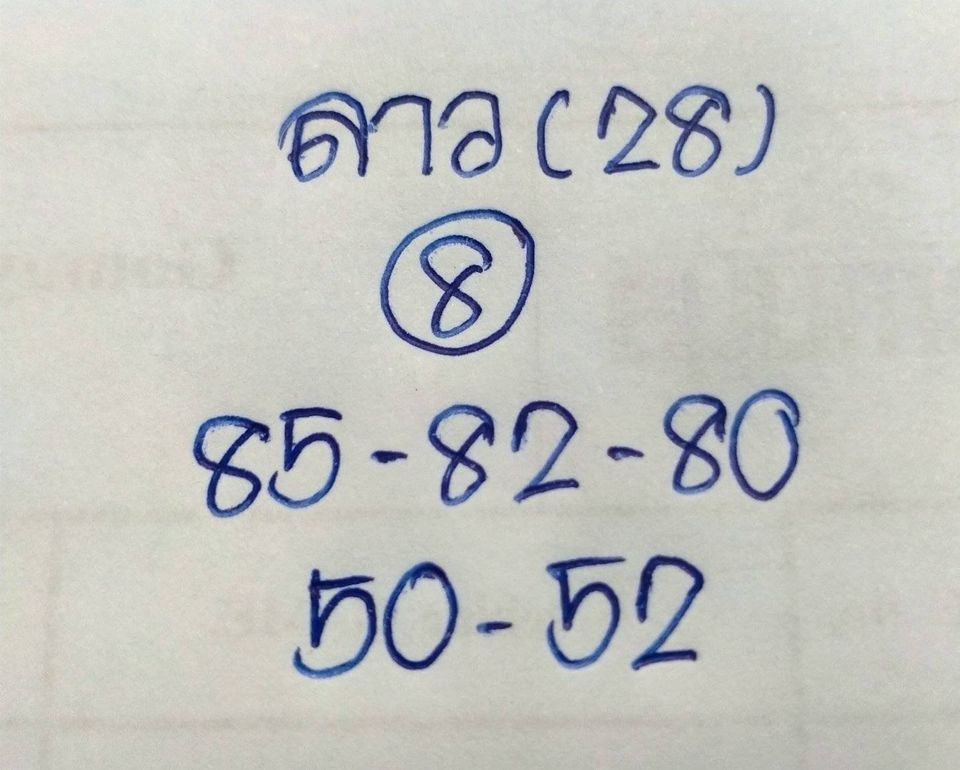 ลาว (28)
8
85-82-80
50-52